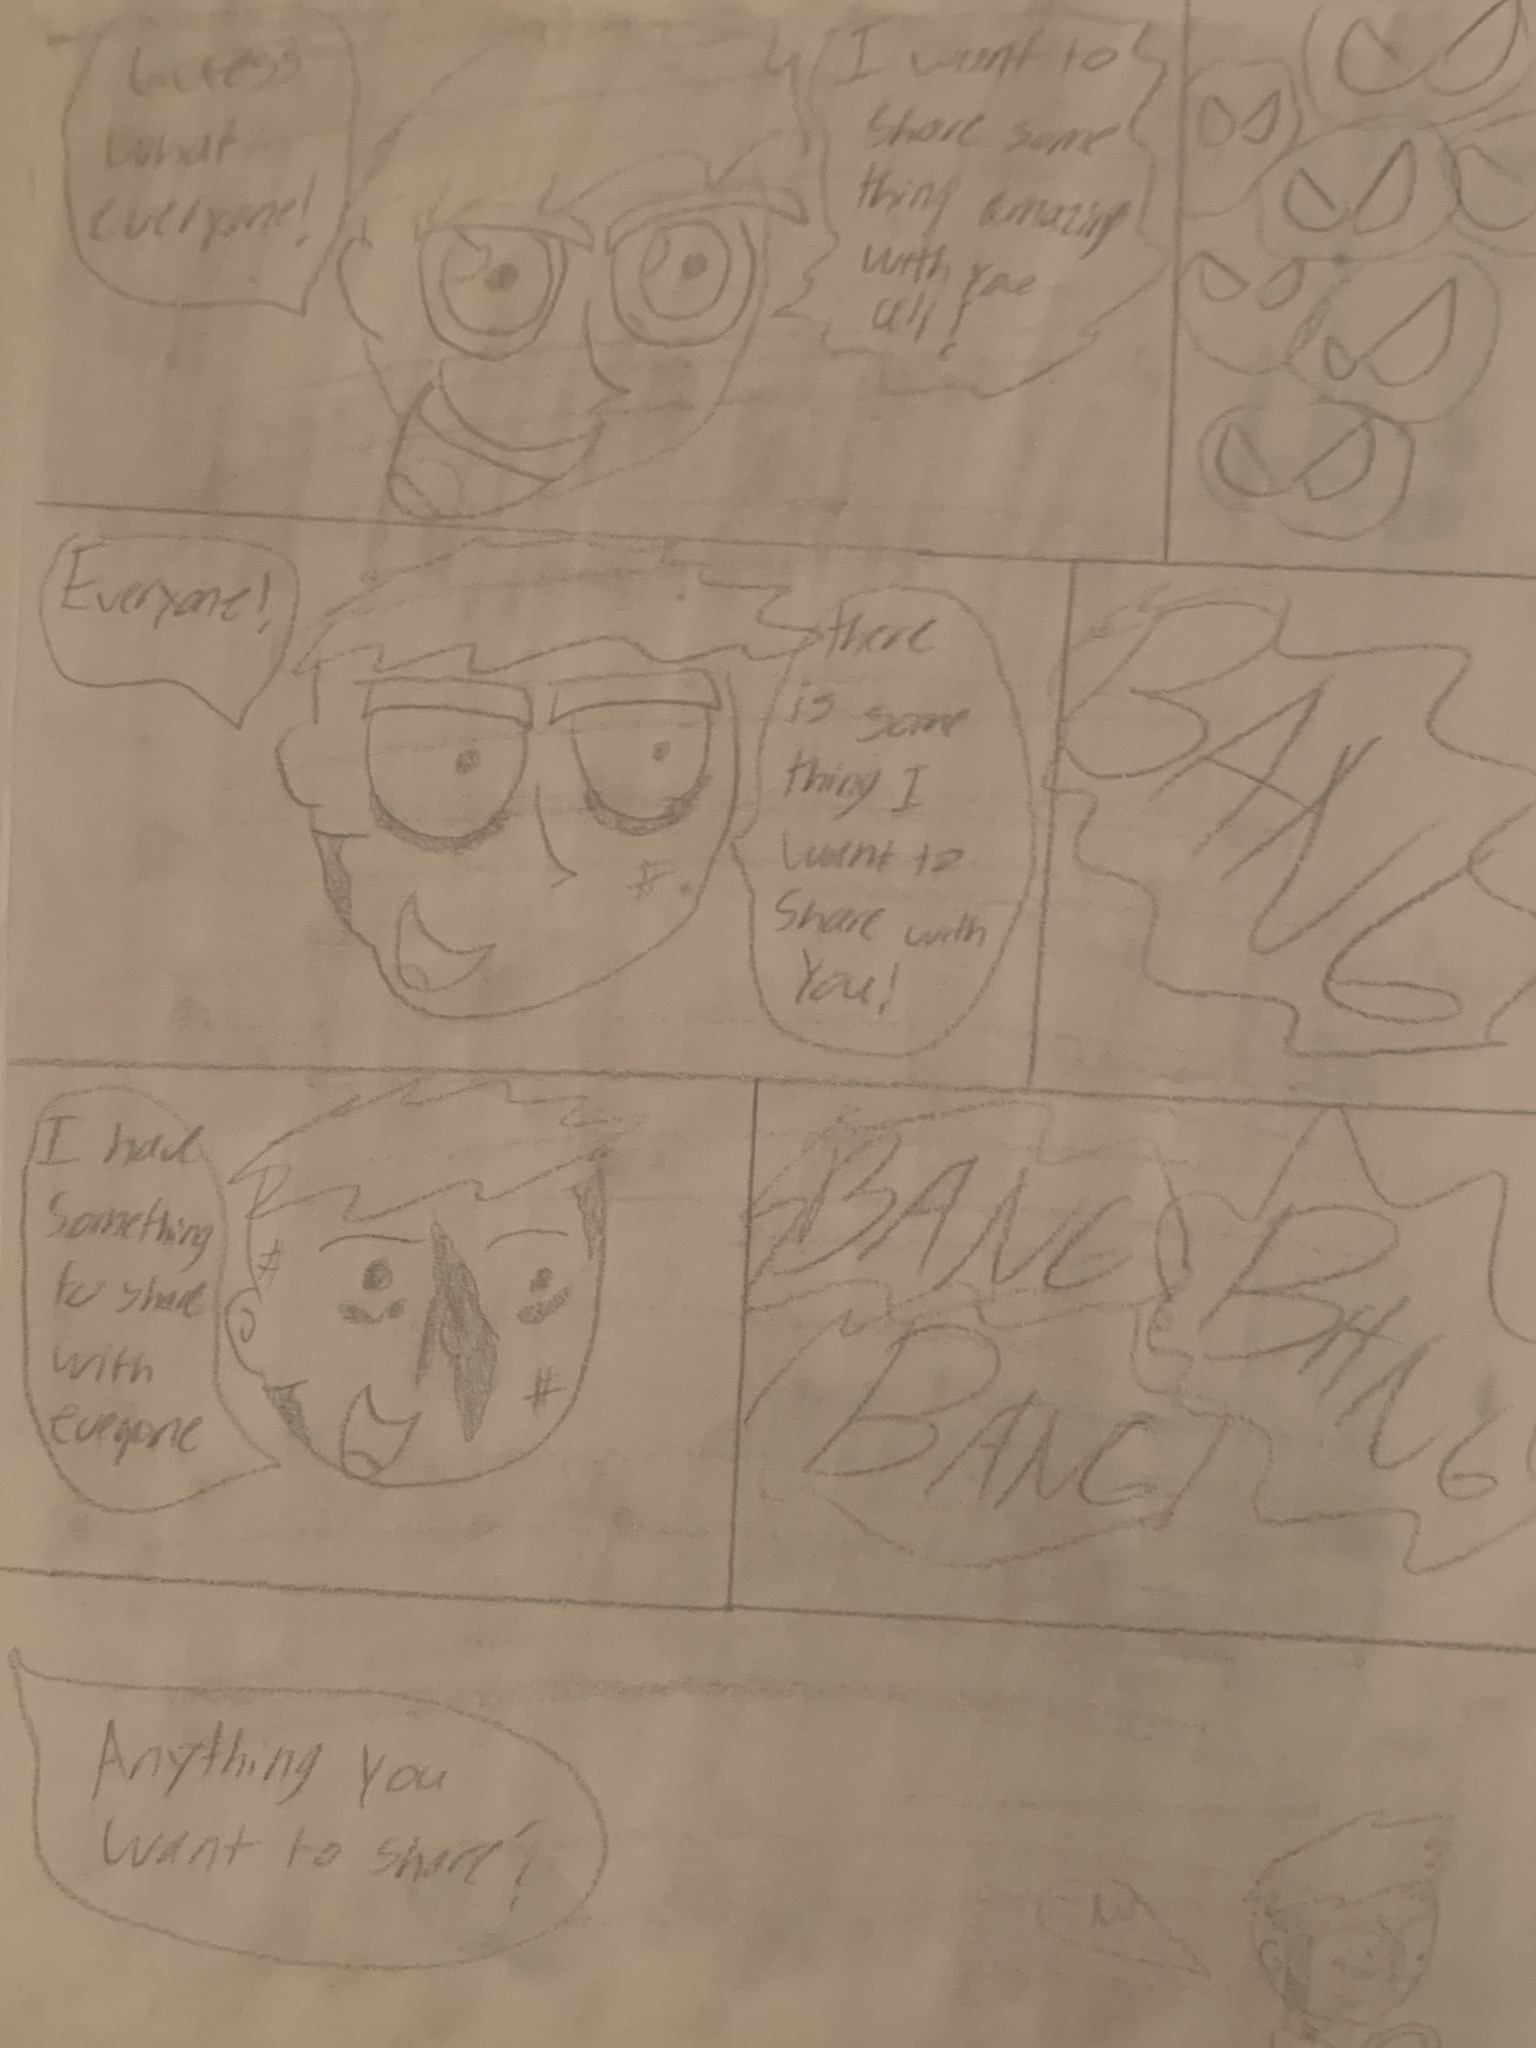 Guess
what
everyone!
I want to
share some
thing amazing
with you
all!
Everyone!
there
is some
thing I
want to
share with
You!
BANG
I have
something
to share
with
everyone
BANG
BANG
BANG
Anything you
want to share?